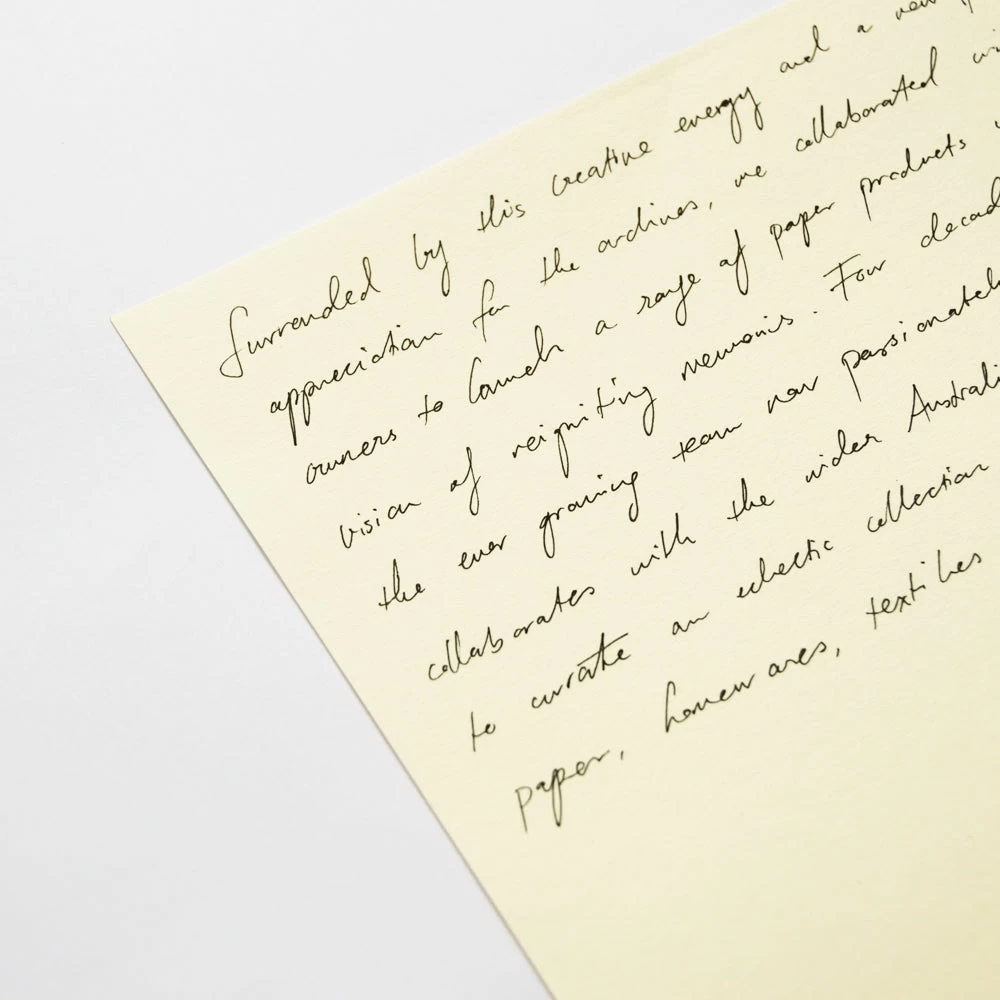 Surrended by this creative energy and a new
appreciation for the archives, we collaborated wi
owners to launch a range of paper products
vision of reigniting memories. Four decad
the ever growing team now passionatel
collaborates with the wider Australi
to curate an eclectic collection
paper, homewares, textiles